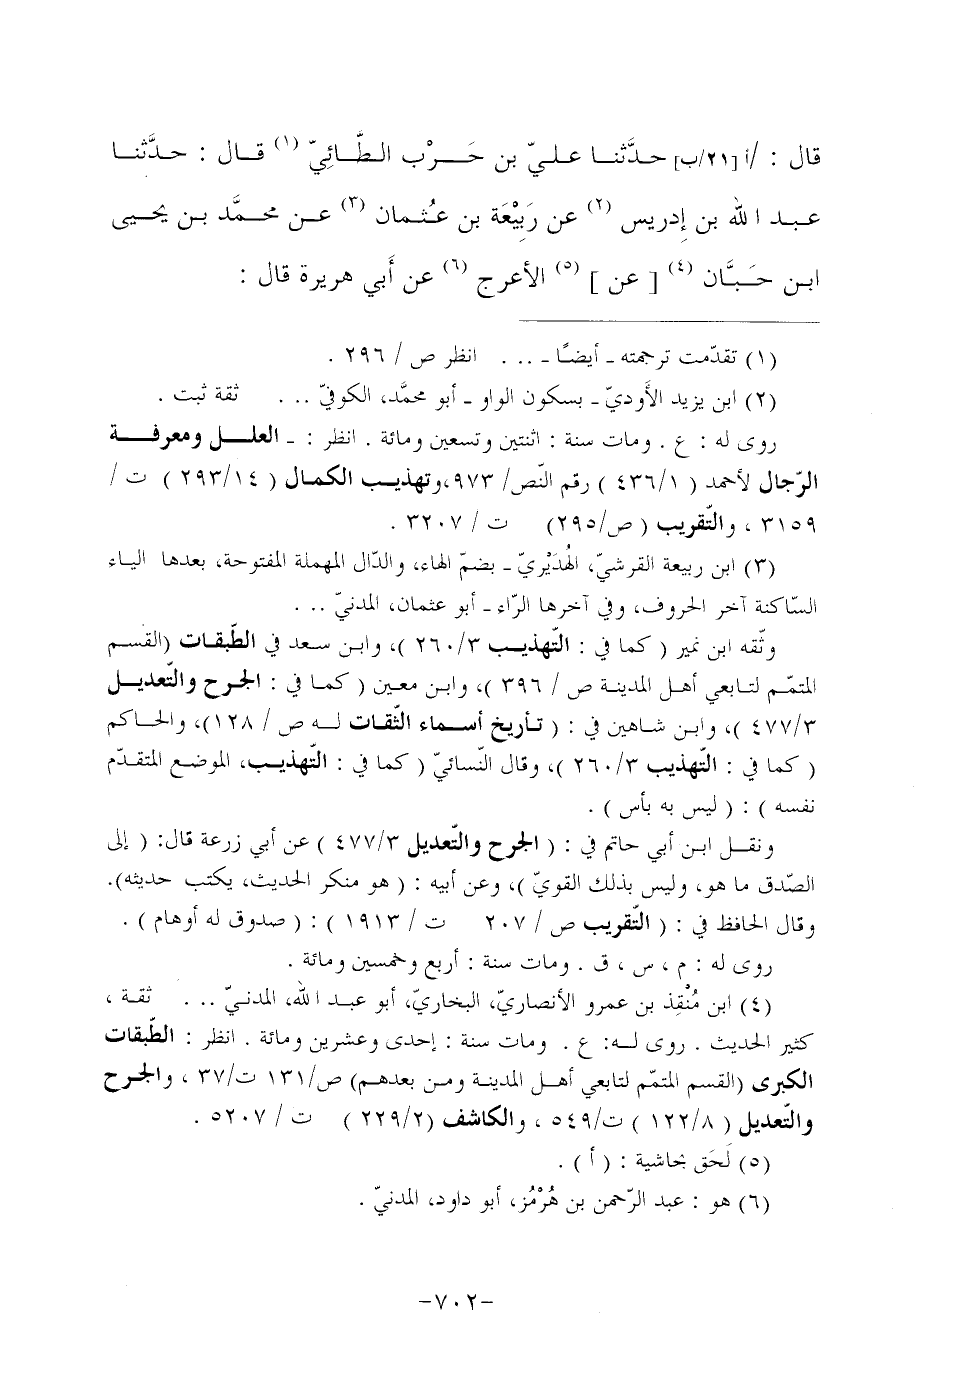 قال : /أ [٢١/ب] حدَّثنا عليّ بن حَرْب الطَّائِيّ (١) قال : حدَّثنا
عبد الله بن إدريس (٢) عن رَبِيْعَة بن عُثمان (٣) عن محمَّد بن يحيى
ابن حَبَّان (٤) [ عن ] (٥) الأعرج (٦) عن أَبي هريرة قال :
(١) تقدّمت ترجمته ـ أيضًا ـ ... انظر ص / ٢٩٦ .
(٢) ابن يزيد الأَوديّ ـ بسكون الواو ـ أبو محمَّد، الكوفيّ ... ثقة ثبت .
روى له : ع . ومات سنة : اثنتين وتسعين ومائة . انظر : ـ العلل ومعرفة
الرّجال لأحمد ( ٤٣٦/١ ) رقم النّص/ ٩٧٣، وتهذيب الكمال ( ٢٩٣/١٤ ) ت /
٣١٥٩ ، والتّقريب ( ص/٢٩٥) ت / ٣٢٠٧ .
(٣) ابن ربيعة القرشيّ، الهُدَيْريّ ـ بضمّ الهاء، والدّال المهملة المفتوحة، بعدها الياء
السّاكنة آخر الحروف، وفي آخرها الرّاء ـ أبو عثمان، المدنيّ ... .
وثّقه ابن نمير ( كما في : التّهذيب ٢٦٠/٣ )، وابن سعد في الطّبقات (القسم
المتمّم لتابعي أهل المدينة ص / ٣٩٦ )، وابن معين ( كما في : الجرح والتّعديل
٤٧٧/٣ )، وابن شاهين في : ( تأريخ أسماء الثّقات له ص / ١٢٨)، والحاكم
( كما في : التّهذيب ٢٦٠/٣ )، وقال النّسائيّ ( كما في : التّهذيب، الموضع المتقدّم
نفسه ) : ( ليس به بأس ) .
ونقل ابن أبي حاتم في : ( الجرح والتّعديل ٤٧٧/٣ ) عن أبي زرعة قال: ( إلى
الصّدق ما هو، وليس بذلك القويّ )، وعن أبيه : ( هو منكر الحديث، يكتب حديثه).
وقال الحافظ في : ( التّقريب ص / ٢٠٧ ت / ١٩١٣ ) : ( صدوق له أوهام ) .
روى له : م ، س ، ق . ومات سنة : أربع وخمسين ومائة .
(٤) ابن مُنْقِذ بن عمرو الأنصاريّ، البخاريّ، أبو عبد الله، المدنيّ ... ثقة ،
كثير الحديث . روى له: ع . ومات سنة : إحدى وعشرين ومائة . انظر : الطّبقات
الكبرى (القسم المتمّم لتابعي أهل المدينة ومن بعدهم) ص/١٣١ ت/٣٧ ، والجرح
والتّعديل ( ١٢٢/٨ ) ت/٥٤٩ ، والكاشف (٢٢٩/٢ ) ت / ٥٢٠٧ .
(٥) لَحَق بحاشية : ( أ ) .
(٦) هو : عبد الرّحمن بن هُرْمُز، أبو داود، المدنيّ .
-٧٠٢-